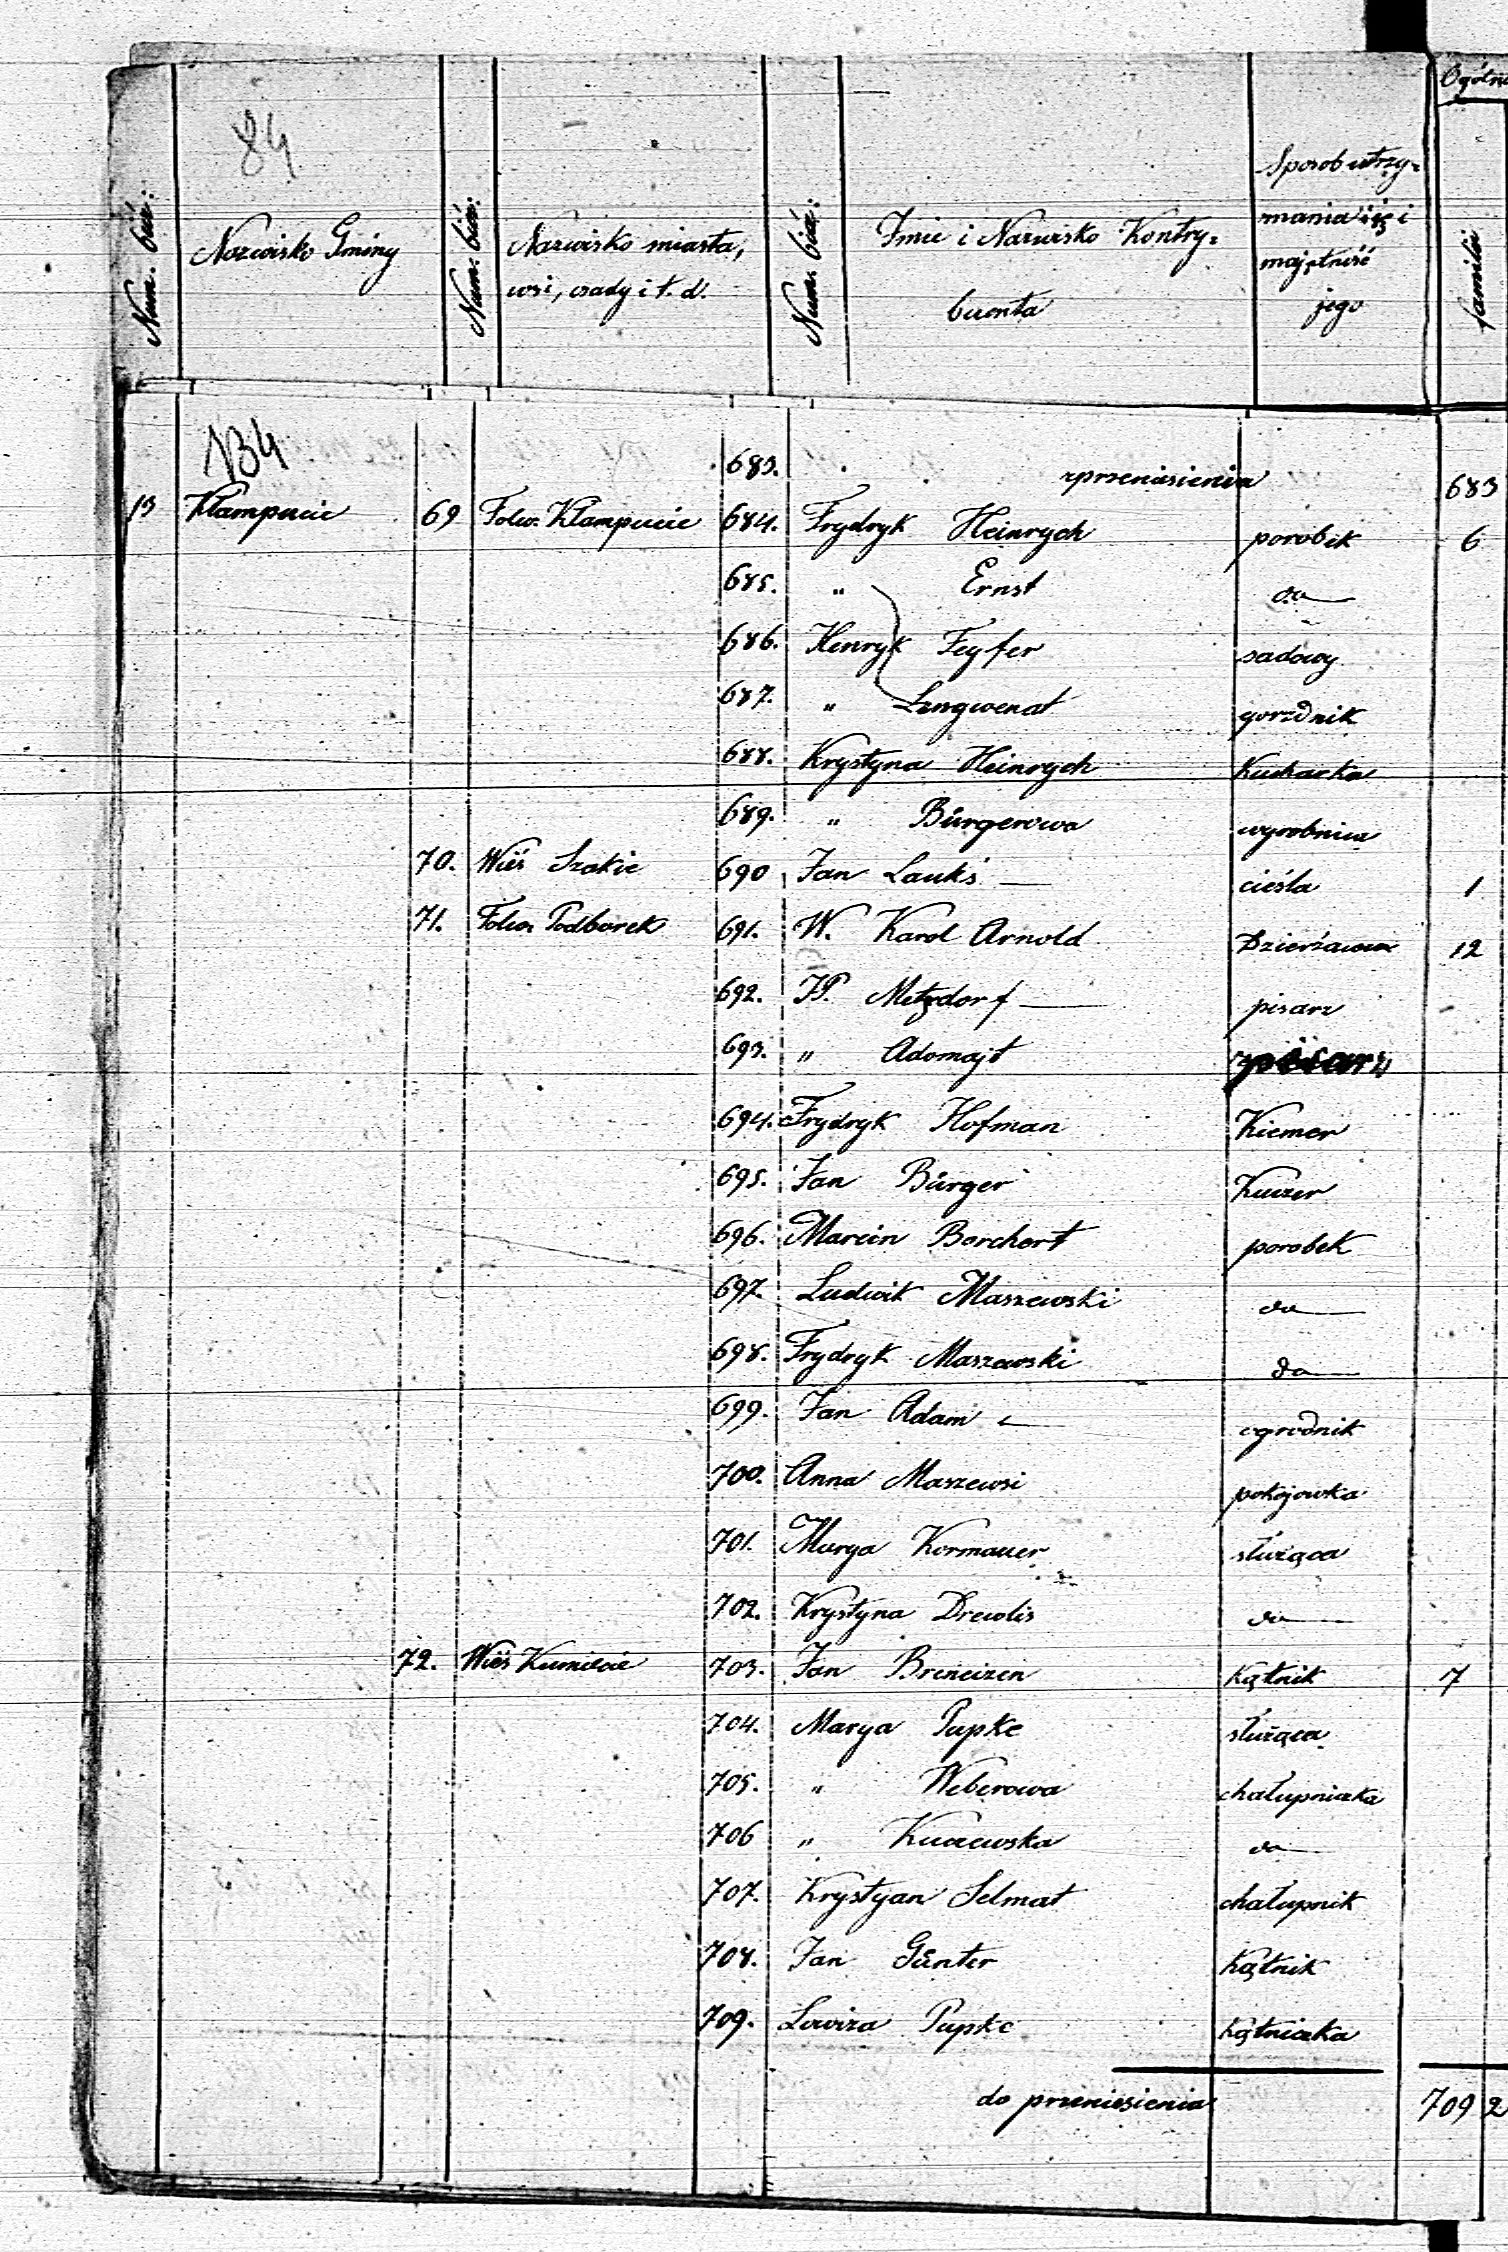 84
Ogóln
Num. bież:
Nazwisko Gminy
Num. bież:
Nazwisko miasta,
wsi, osady i t. d.
Num. bież:
Imie i Nazwisko Kontry=
buenta
Sposob utrzy=
mania się i
majętność
jego
familii
134
683. zprzeniesienia 683
13 Kłampucie 69 Folw. Kłampucie 684. Frydryk Heinrych porobek 6
685. " Ernst do
686. Henryk Feyfer sadowy
687. " Langwenat gorzdnik
688. Krystyna Heinrych Kucharka
689. " Bürgerowa wyrobnica
70. Wieś Szakie 690 Jan Laukś cieśla 1
71. Folw. Podborek 691. W. Karol Arnold Dzierżawca 12
692. JP. Metzdorf pisarz
693. " Adomajt pisarz
694. Frydryk Hofman Kiemer
695. Jan Bürger Kuczer
696. Marcin Borchert porobek
697. Ludwik Maszewski do
698. Frydryk Maszewski do
699. Jan Adam ogrodnik
700. Anna Maszewsi pokojowka
701. Marya Kormauer służąca
702. Krystyna Drewlis do
72. Wieś 703. Jan Breneizen Kątnik 7
704. Marya Pupke służąca
705. " Weberowa chałupniczka
706 " Kuczewska do
707. Krystyan Selmat chałupnik
708. Jan Günter Kątnik
709. Lowiza Pupke Kątniczka
do przeniesienia 709 2